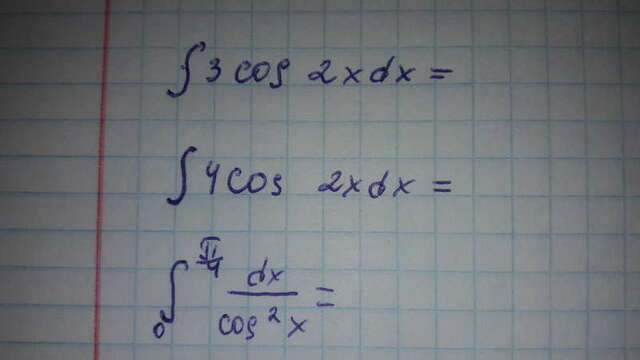 ∫ 3 cos 2x dx =
∫ 4 cos 2x dx =
∫₀^{π/4} dx / cos² x =